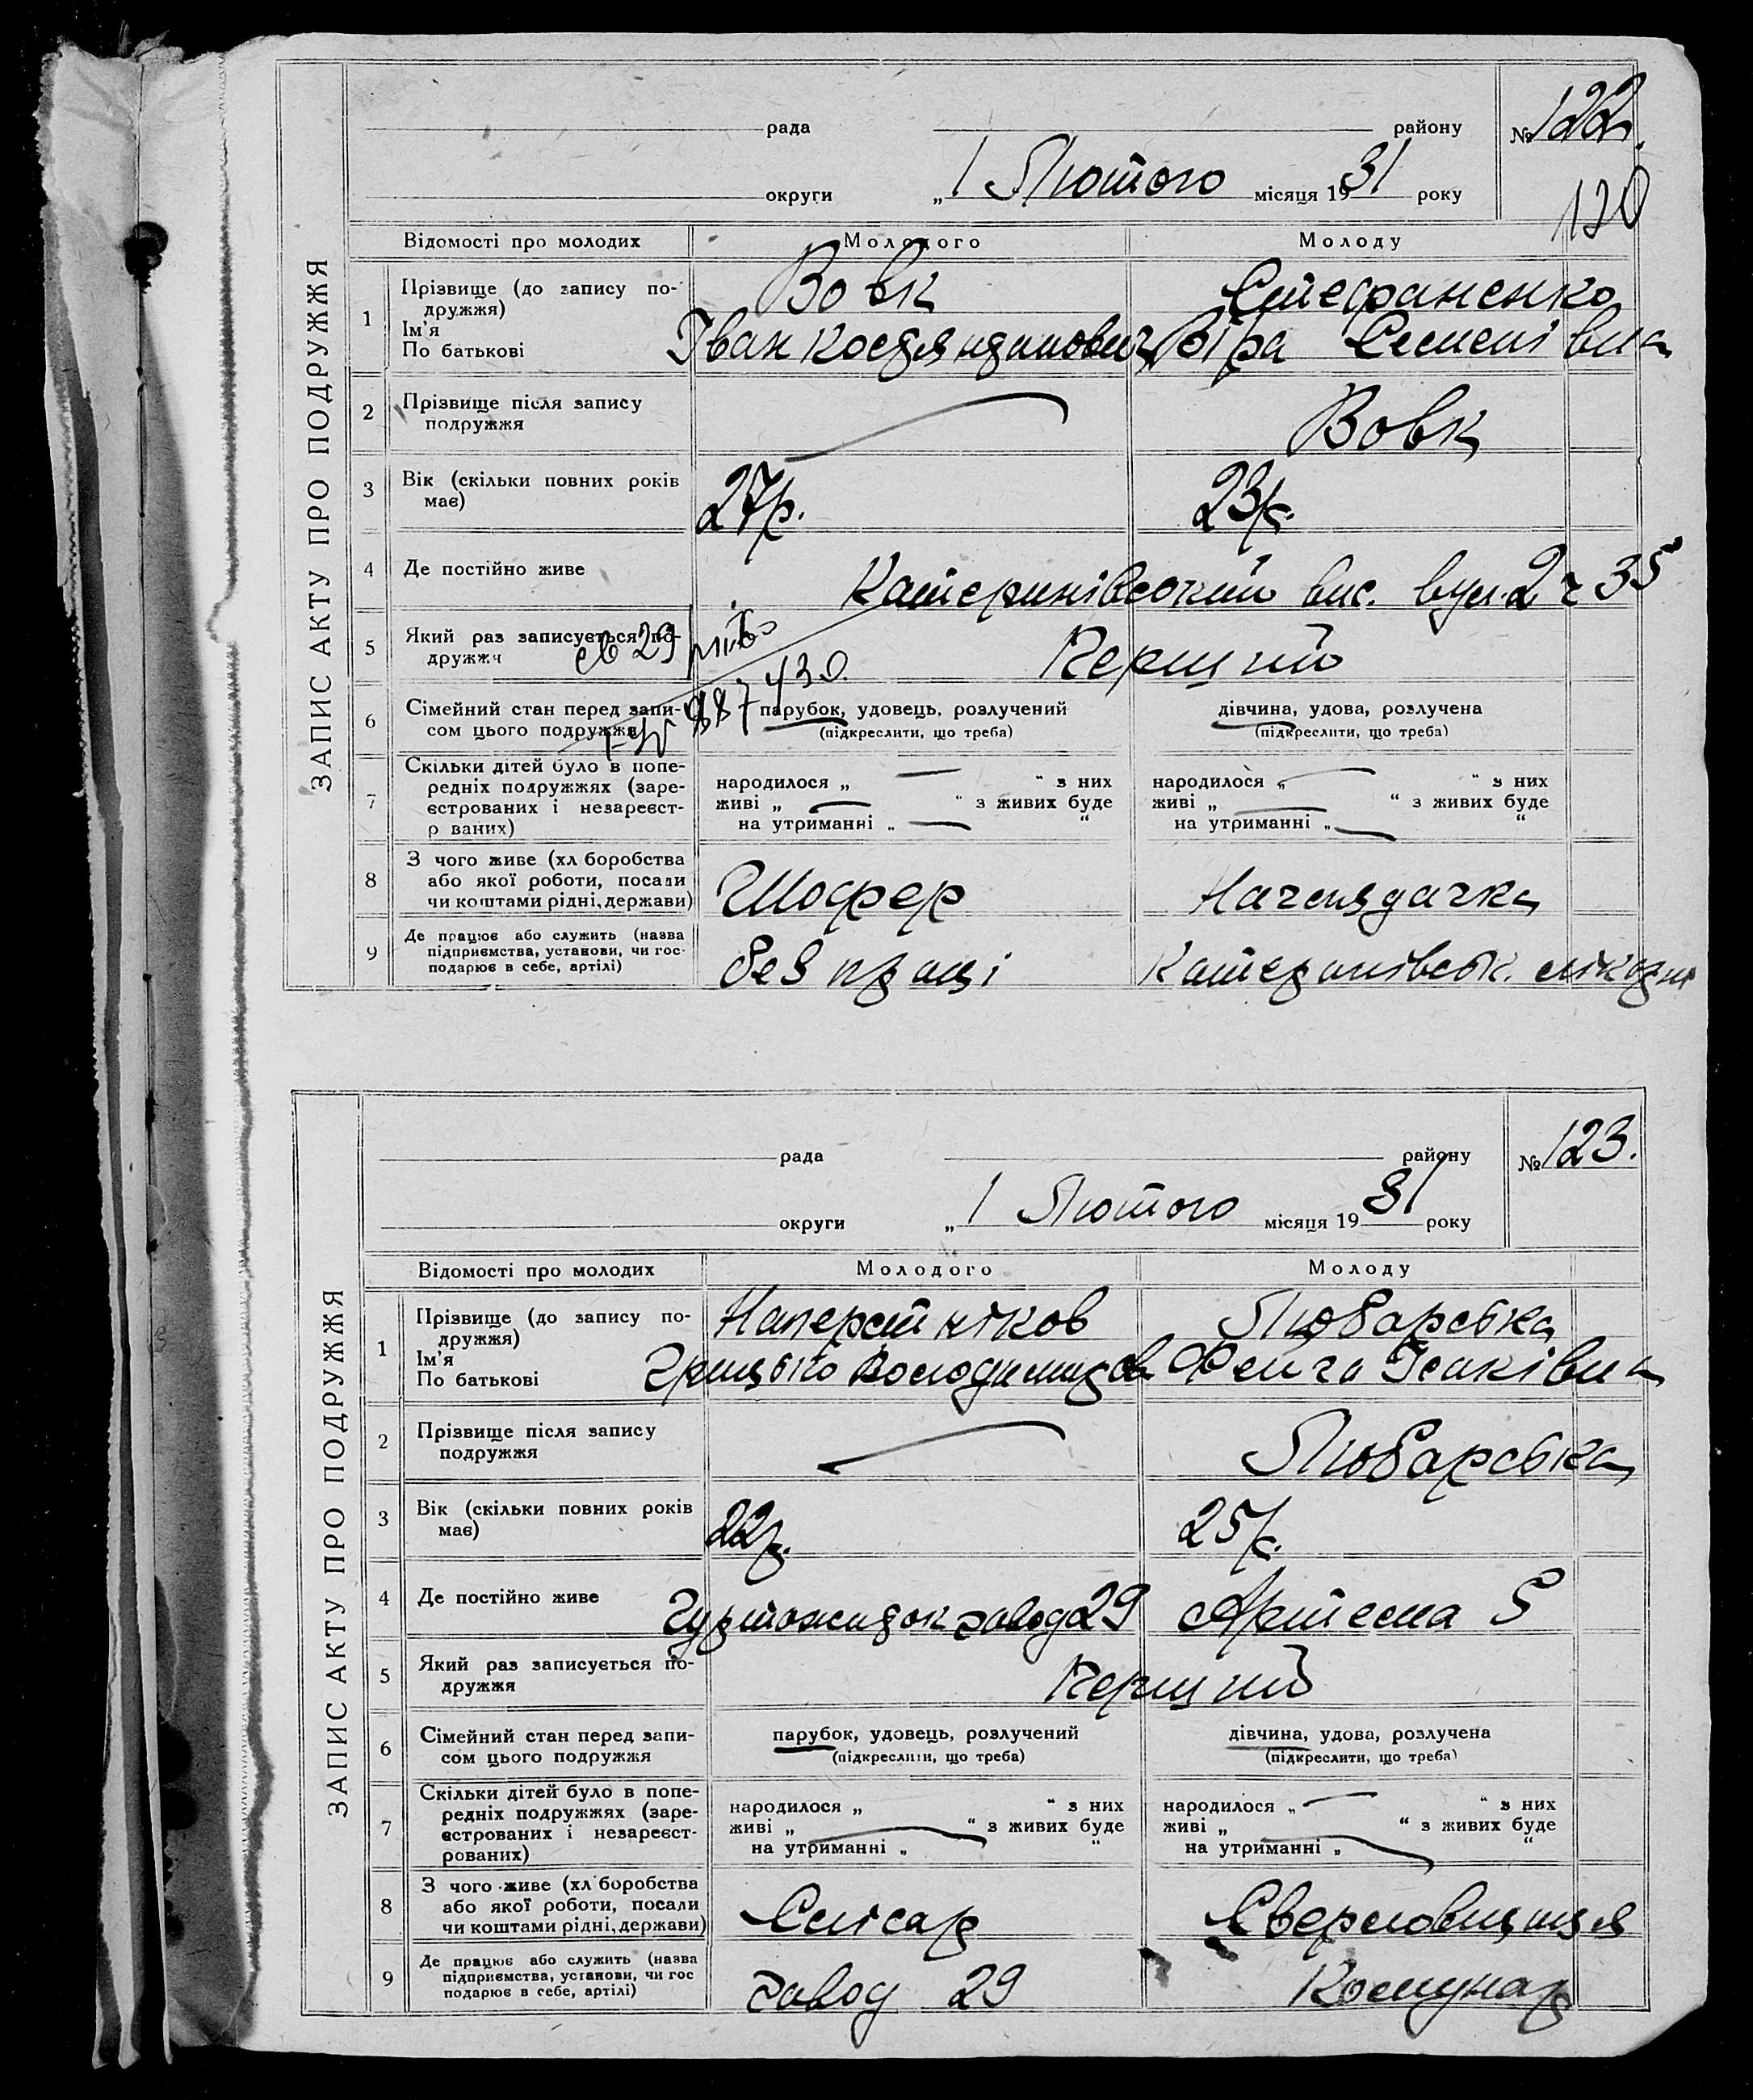 ЗАПИС АКТУ ПРО ПОДРУЖЖЯ
рада району № 122.
округи „ 1 Лютого місяця 1931 року
130
Відомості про молодих Молодого Молоду
1 Прізвище (до запису по-
дружжя)
Ім'я
По батькові
Вовк Стефаненко
Іван Віра Семенівна
2 Прізвище після запису
подружжя
Вовк
3 Вік (скільки повних років
має)
27р. 23р.
4 Де постійно живе
Катеринівський вис. вул. 2 ч 35
5 Який раз записується по-
дружжя
Перший
св 29
430.
887
6 Сімейний стан перед запи-
сом цього подружжя
парубок, удовець, розлучений
(підкреслити, що треба)
дівчина, удова, розлучена
(підкреслити, що треба)
7 Скільки дітей було в попе-
редніх подружжях (заре-
єстрованих і незареєст-
р ваних)
народилося „ “ з них
живі „ “ з живих буде
на утриманні „ “
народилося „ “ з них
живі „ “ з живих буде
на утриманні „ “
8 З чого живе (хл боробства
або якої роботи, посади
чи коштами рідні, держави)
Шофер Наглядачка
9 Де працює або служить (назва
підприємства, установи, чи гос-
подарює в себе, артілі)
без праці Катеринівськ. лікарня
ЗАПИС АКТУ ПРО ПОДРУЖЖЯ
рада району № 123.
округи „ 1 Лютого місяця 1931 року
Відомості про молодих Молодого Молоду
1 Прізвище (до запису по-
дружжя)
Ім'я
По батькові
Наперстніков Любарська
Грицько Володимиров Фейга Ісаківна
2 Прізвище після запису
подружжя
Любарська
3 Вік (скільки повних років
має)
22р. 25р.
4 Де постійно живе
Гуртожидок завода 29 Артема 5
5 Який раз записується по-
дружжя
Перший
6 Сімейний стан перед запи-
сом цього подружжя
парубок, удовець, розлучений
(підкреслити, що треба)
дівчина, удова, розлучена
(підкреслити, що треба)
7 Скільки дітей було в попе-
редніх подружжях (заре-
єстрованих і незареєст-
рованих)
народилося „ “ з них
живі „ “ з живих буде
на утриманні „ “
народилося „ “ з них
живі „ “ з живих буде
на утриманні „ “
8 З чого живе (хл боробства
або якої роботи, посади
чи коштами рідні, держави)
Слісар Сверловщиця
9 Де працює або служить (назва
підприємства, установи, чи гос
подарює в себе, артілі)
завод 29 Комунар